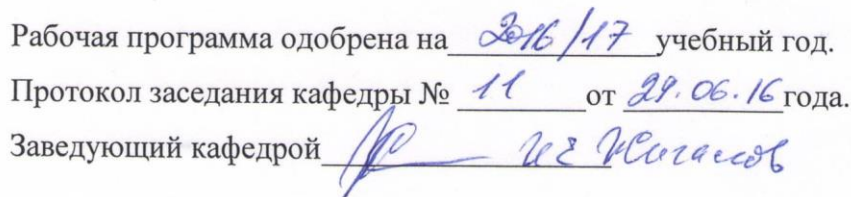 Рабочая программа одобрена на 2016/17 учебный год.
Протокол заседания кафедры № 11 от 29.06.16 года.
Заведующий кафедрой И.Е. Жигалов